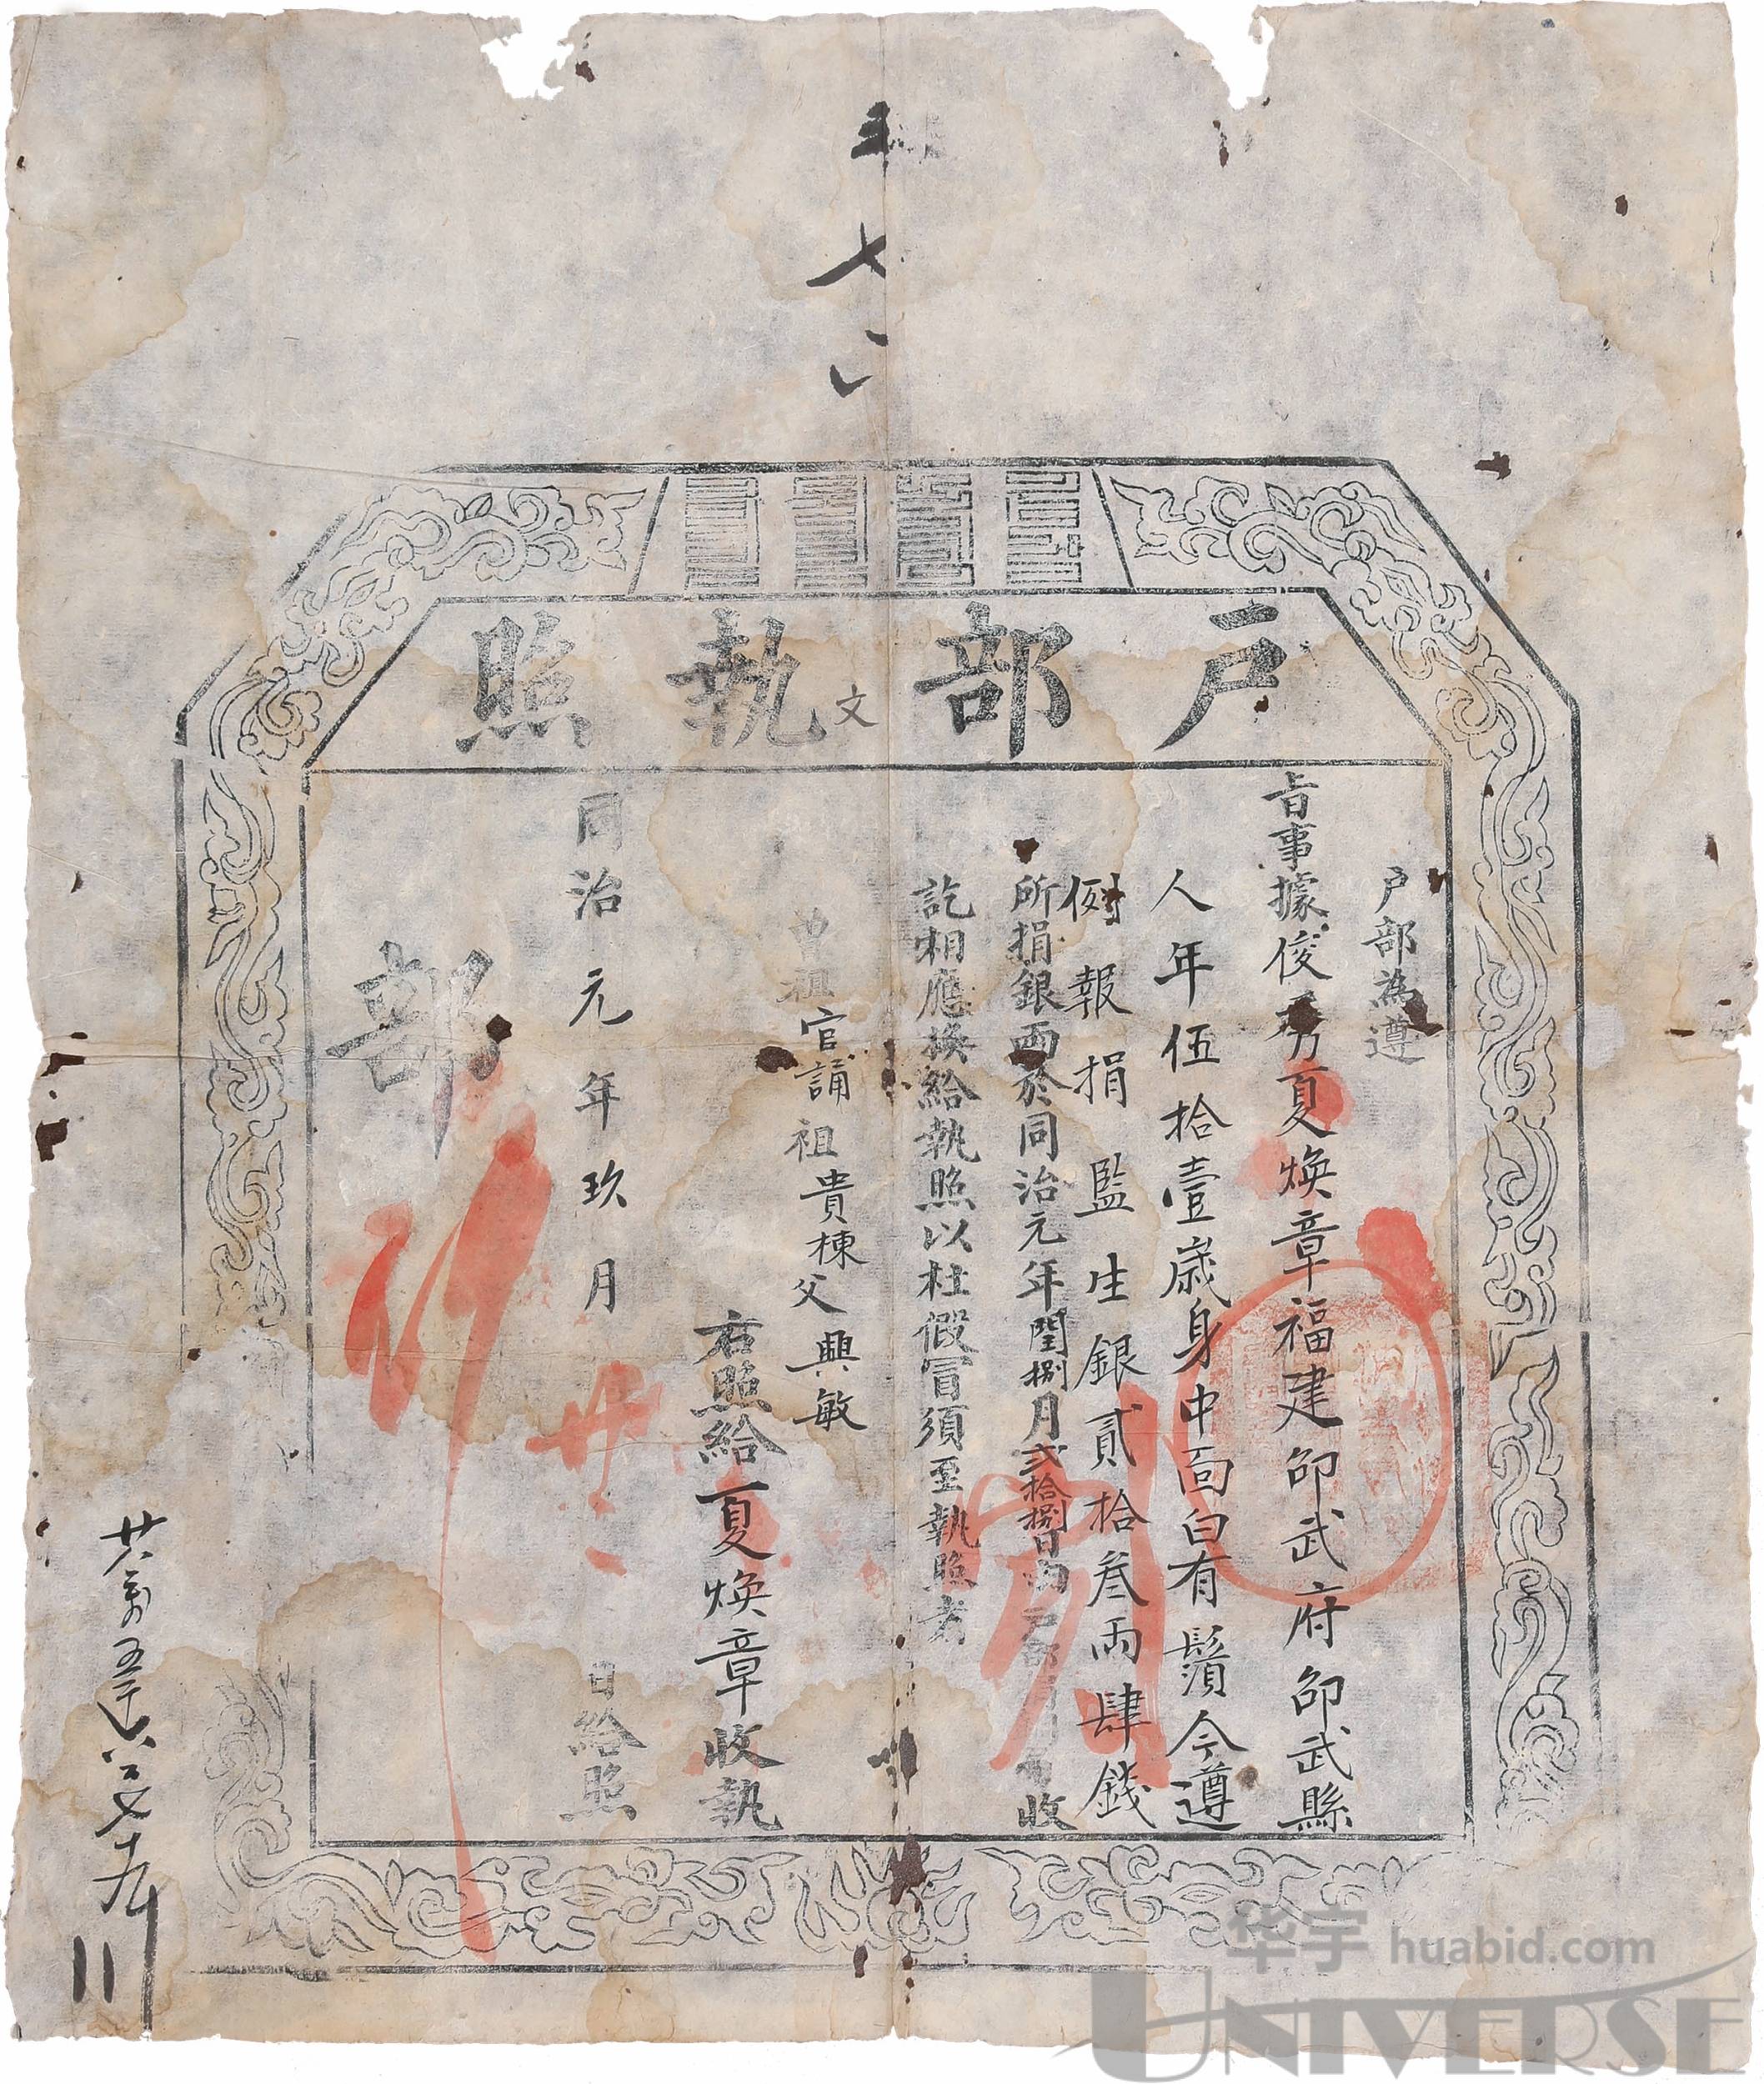 戶部執照
文
户部為遵
旨事據俊秀夏煥章福建邵武府邵武縣
人年伍拾壹歲身中面白有鬚今遵
例報捐監生銀貳拾叁兩肆錢
所捐銀兩於同治元年閏捌月貳拾捌日由戶部收
訖相應換給執照以杜假冒須至執照者
曾祖官誦祖貴棟父興敏
右照給夏煥章收執
同治元年玖月廿二日給照
部
行
华宇 huabid.com
UNIVERSE